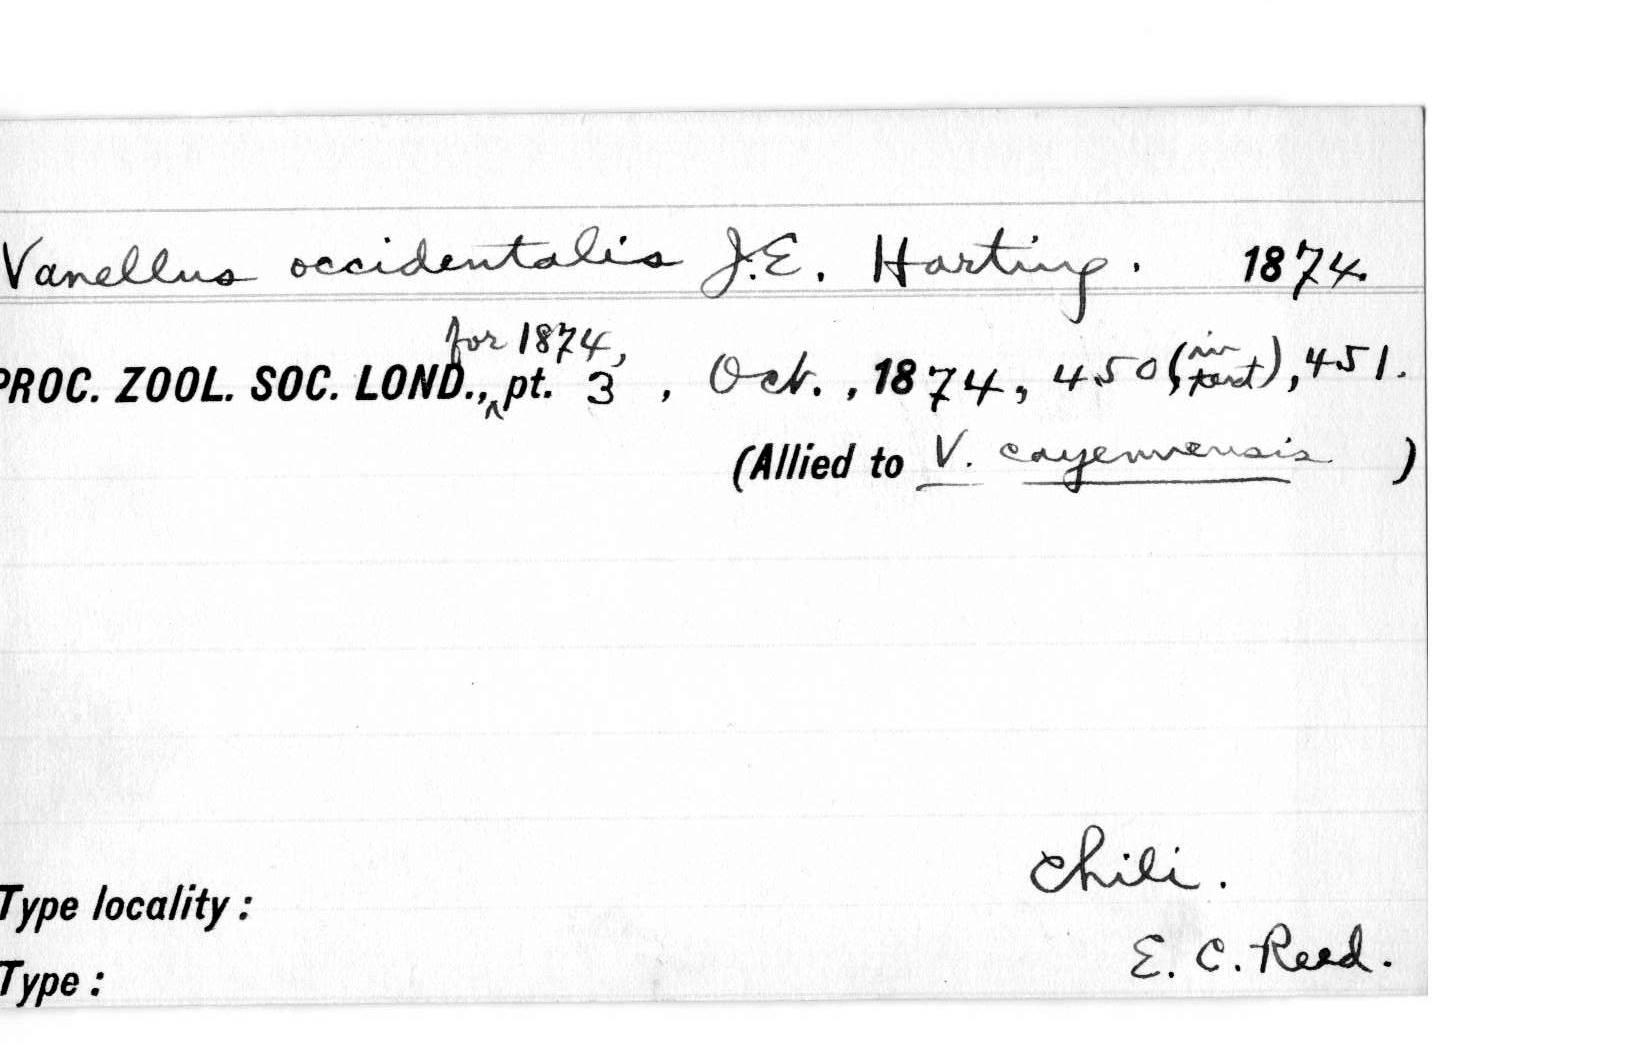 Vanellus occidentalis J.E. Harting. 1874.
for 1874,
PROC. ZOOL. SOC. LOND., pt. 3, Oct., 1874, 450 (in text), 451.
(Allied to V. cayennensis)
Chili.
Type locality:
E. C. Reed.
Type: